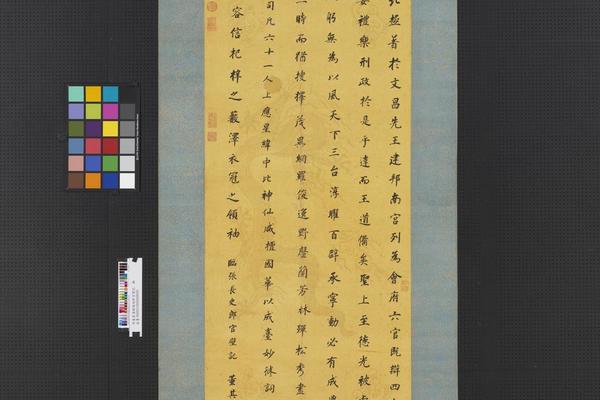 極著於文昌先王建邦南宮列為會府六官既辯四
要禮樂刑政於是乎達而王道備矣聖上至德光被
躬無為以風天下三台淳耀百辟承寧動必有成
一時而猶搜擇茂異網羅俊逸野罄蘭芳林殫松秀盡
司凡六十一人上應星緯中比神仙咸擅國華以成臺妙修詞
容信杞梓之藪澤衣冠之領袖 臨張長史郎官壁記 董其